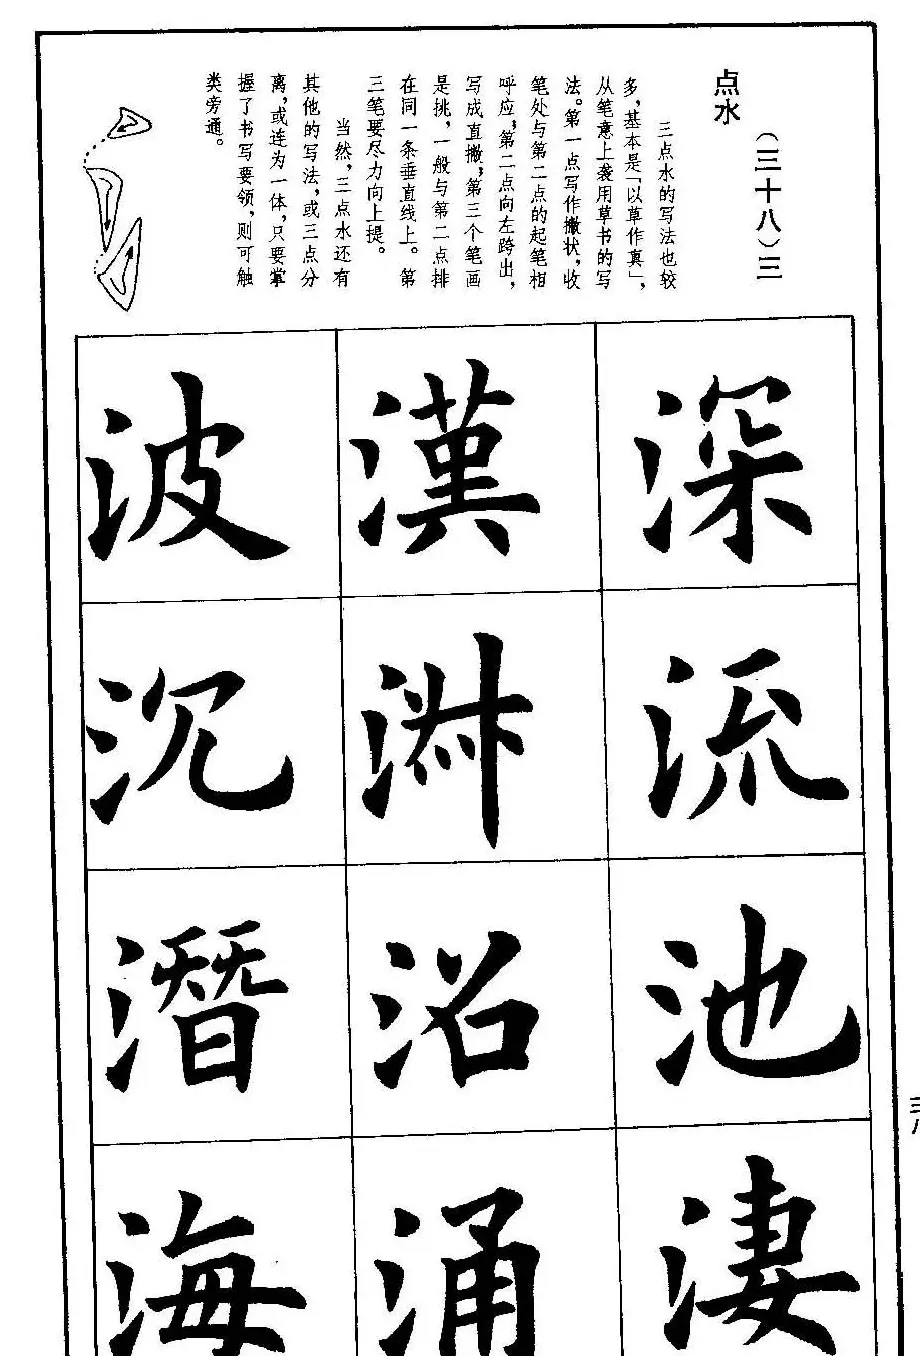 （三十八）三
点水
三点水的写法也较
多，基本是「以草作真」，
从笔意上袭用草书的写
法。第一点写作撇状，收
笔处与第二点的起笔相
呼应，第二点向左跨出，
写成直撇，第三个笔画
是挑，一般与第二点排
在同一条垂直线上。第
三笔要尽力向上提。
当然，三点水还有
其他的写法，或三点分
离，或连为一体，只要掌
握了书写要领，则可触
类旁通。
深 流 池 淒
漢 沼 涌
波 沉 潛 海
三八